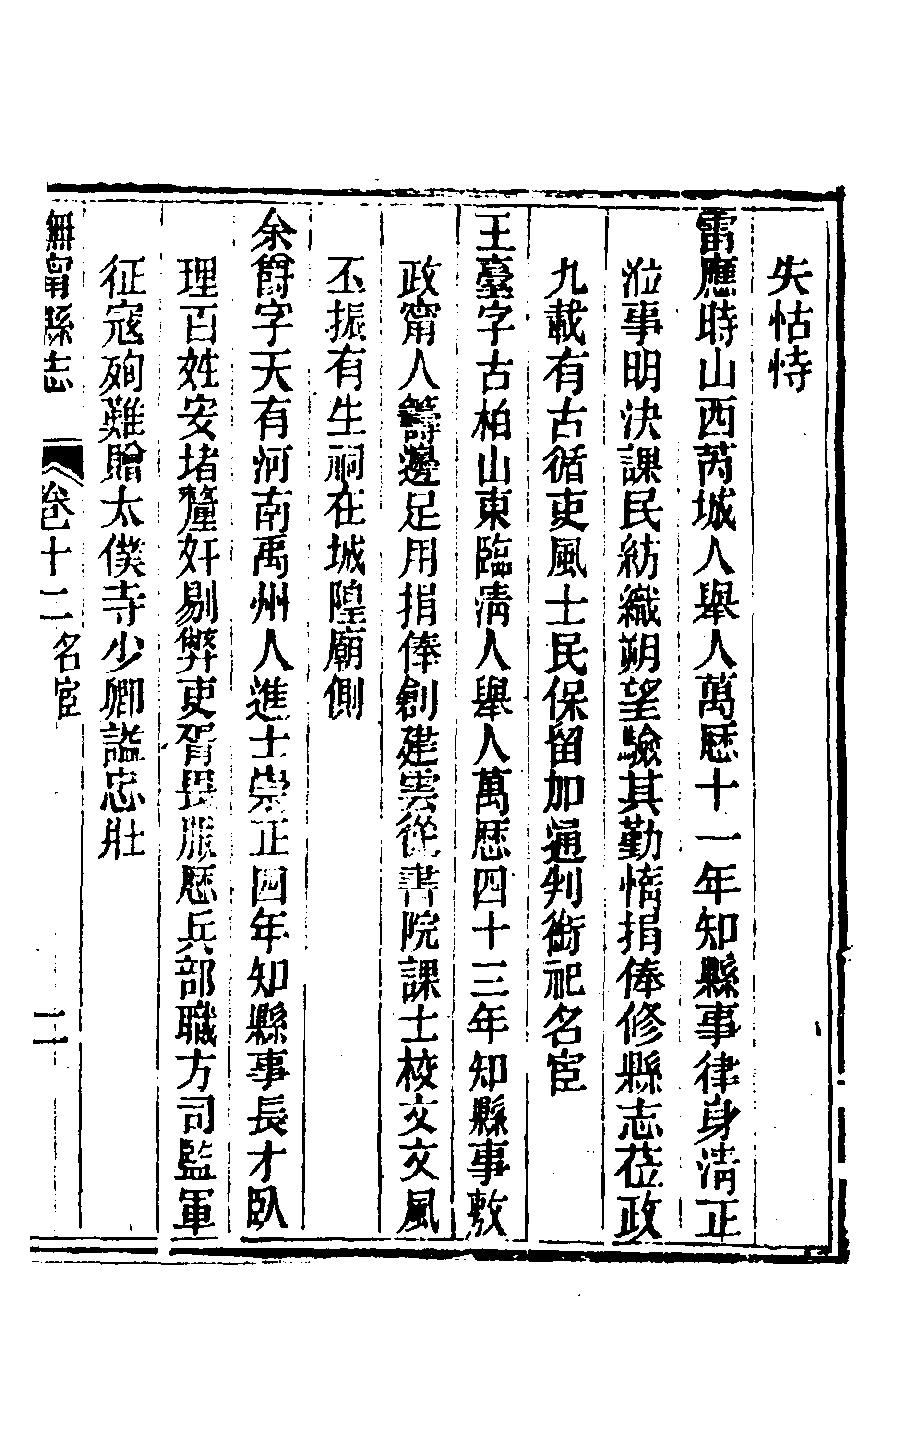 失怙恃
雷應時山西芮城人舉人萬曆十一年知縣事律身淸正
涖事明決課民紡織朔望驗其勤惰捐俸修縣志莅政
九載有古循吏風士民保留加通判銜祀名宦
王臺字古柏山東臨淸人舉人萬歷四十三年知縣事敷
政甯人籌邊足用捐俸創建雲從書院課士校文文風
丕振有生祠在城隍廟側
余爵字天有河南禹州人進士崇正四年知縣事長才臥
理百姓安堵釐奸剔弊吏胥畏服歷兵部職方司監軍
征寇殉難贈太僕寺少卿謚忠壯
無甯縣志 卷十二名宦 二